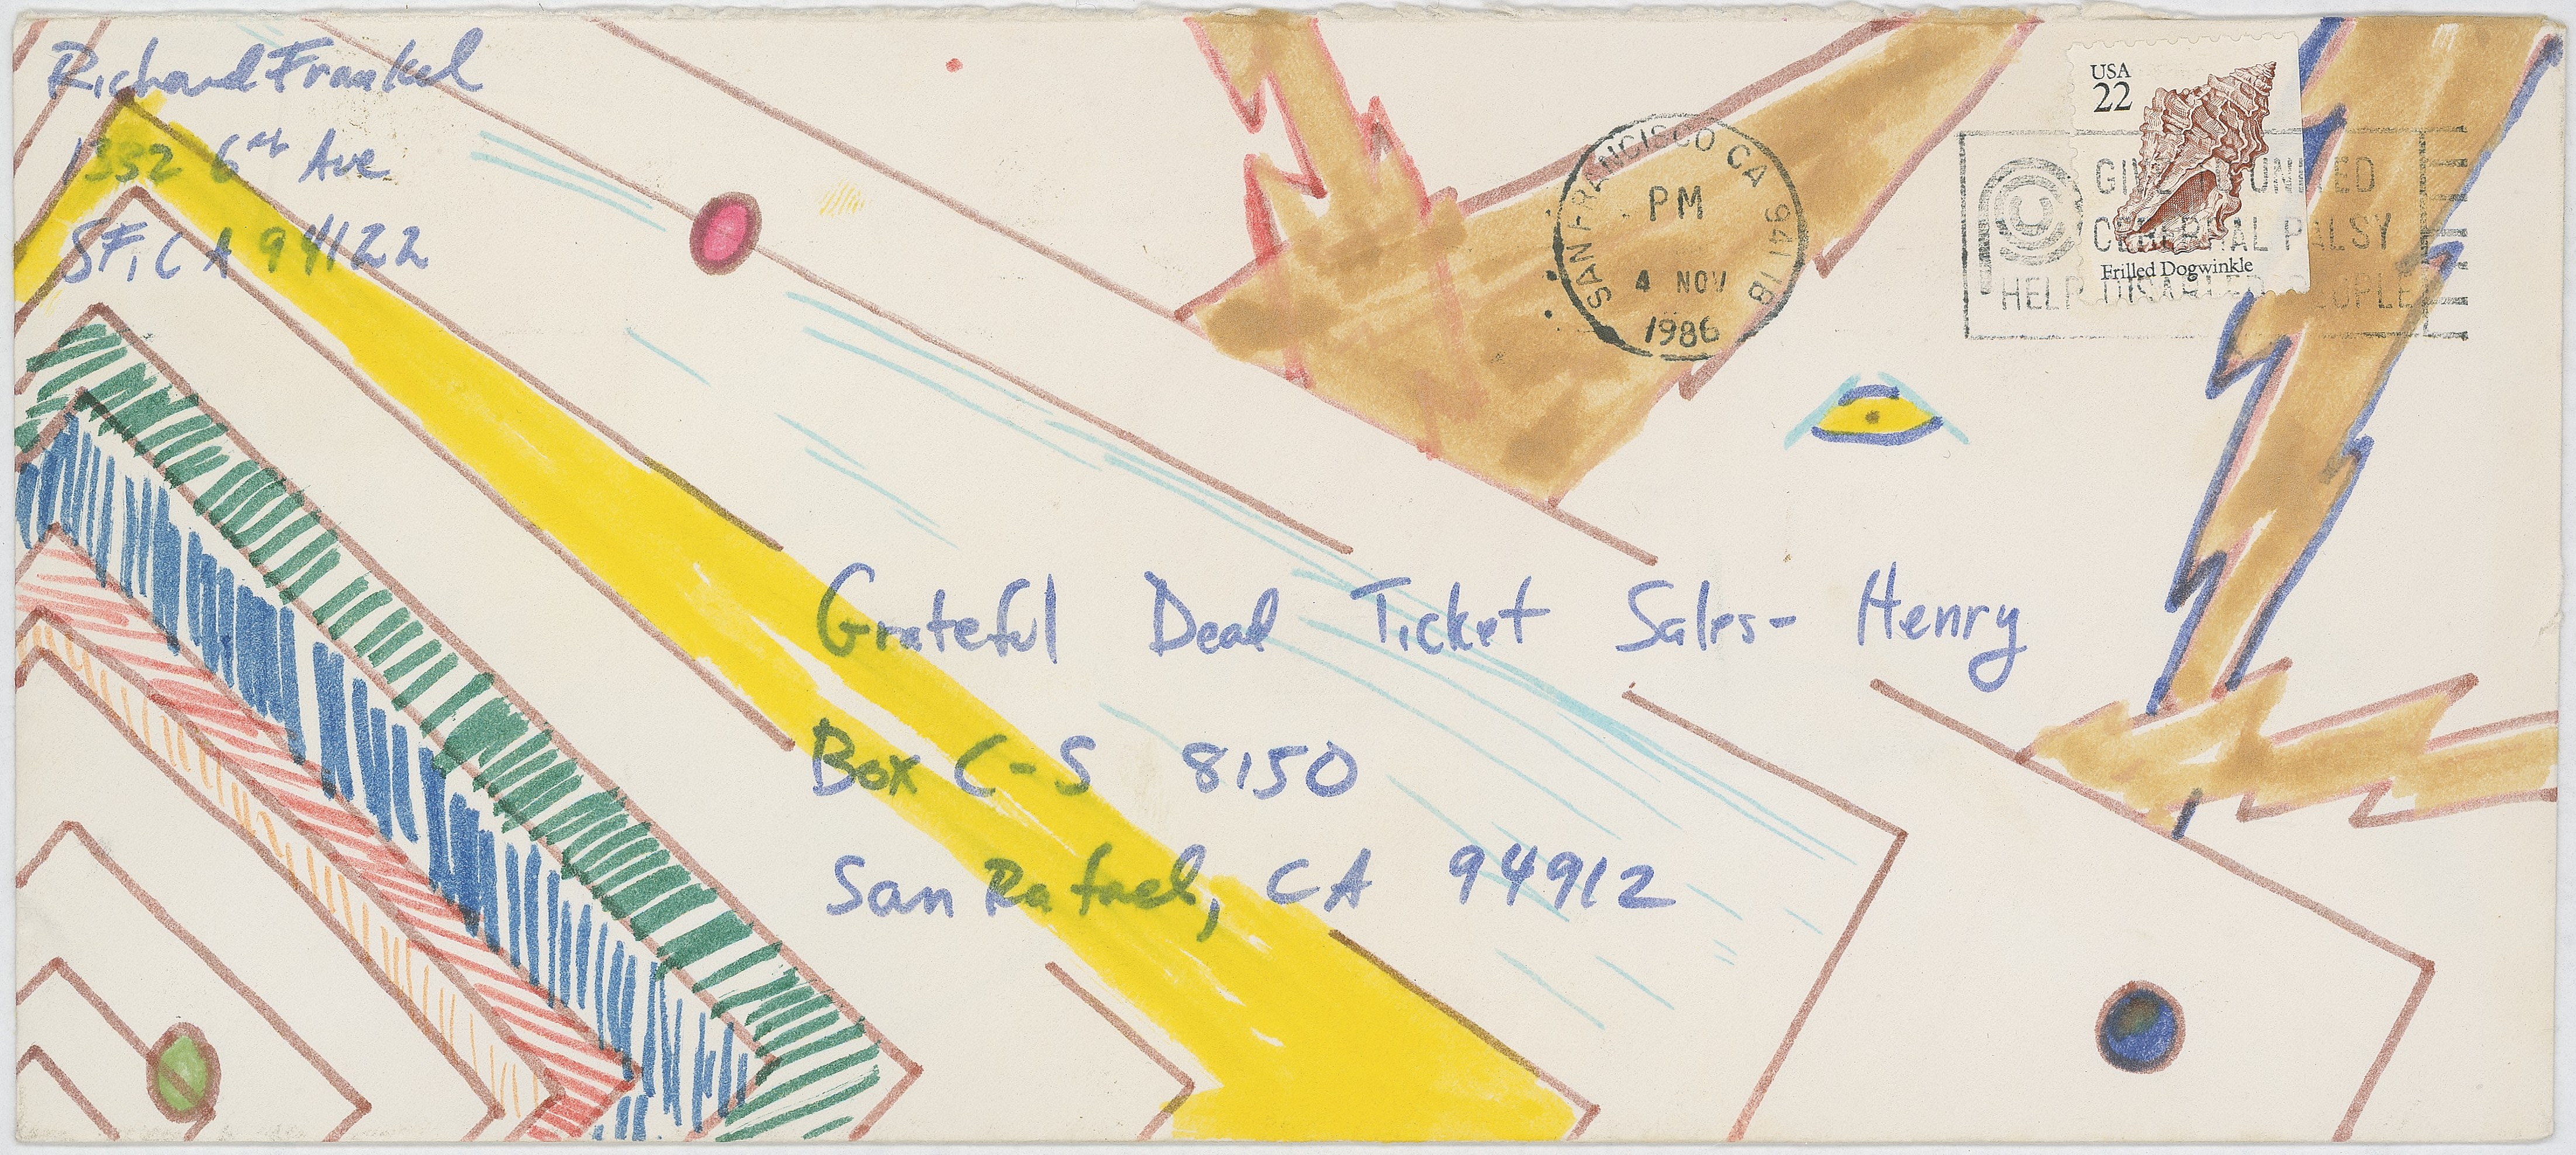 Richard Frankel
1352 6th Ave
SF, CA 94122
SAN FRANCISCO CA 941 1B
PM
4 NOV
1986
USA
22
Frilled Dogwinkle
GIVE UNITED
CEREBRAL PALSY
HELP DISABLED PEOPLE
Grateful Dead Ticket Sales- Henry
Box C-S 8150
San Rafael, CA 94912